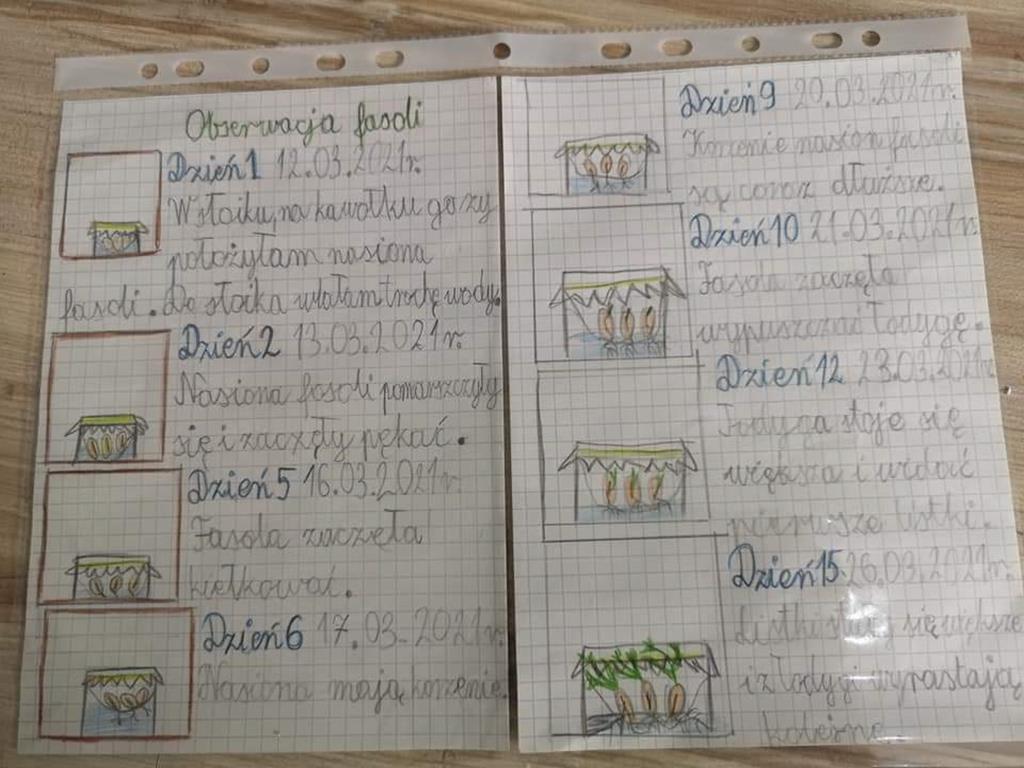 Obserwacja fasoli
Dzień 1 12.03.2021r.
W słoiku, na kawałku gazy
położyłam nasiona
fasoli. Do słoika wlałam trochę wody.
Dzień 2 13.03.2021r.
Nasiona fasoli pomarszczyły
się i zaczęły pękać.
Dzień 5 16.03.2021r.
Fasola zaczęła
kiełkować.
Dzień 6 17.03.2021r.
Nasiona mają korzenie.
Dzień 9 20.03.2021r.
Korzenie nasion fasoli
są coraz dłuższe.
Dzień 10 21.03.2021r.
Fasola zaczęła
wypuszczać łodygę.
Dzień 12 23.03.2021r.
Łodyga staje się
większa i widać
pierwsze listki.
Dzień 15 26.03.2021r.
Listki stają się większe
i z łodygi wyrastają
kolejne